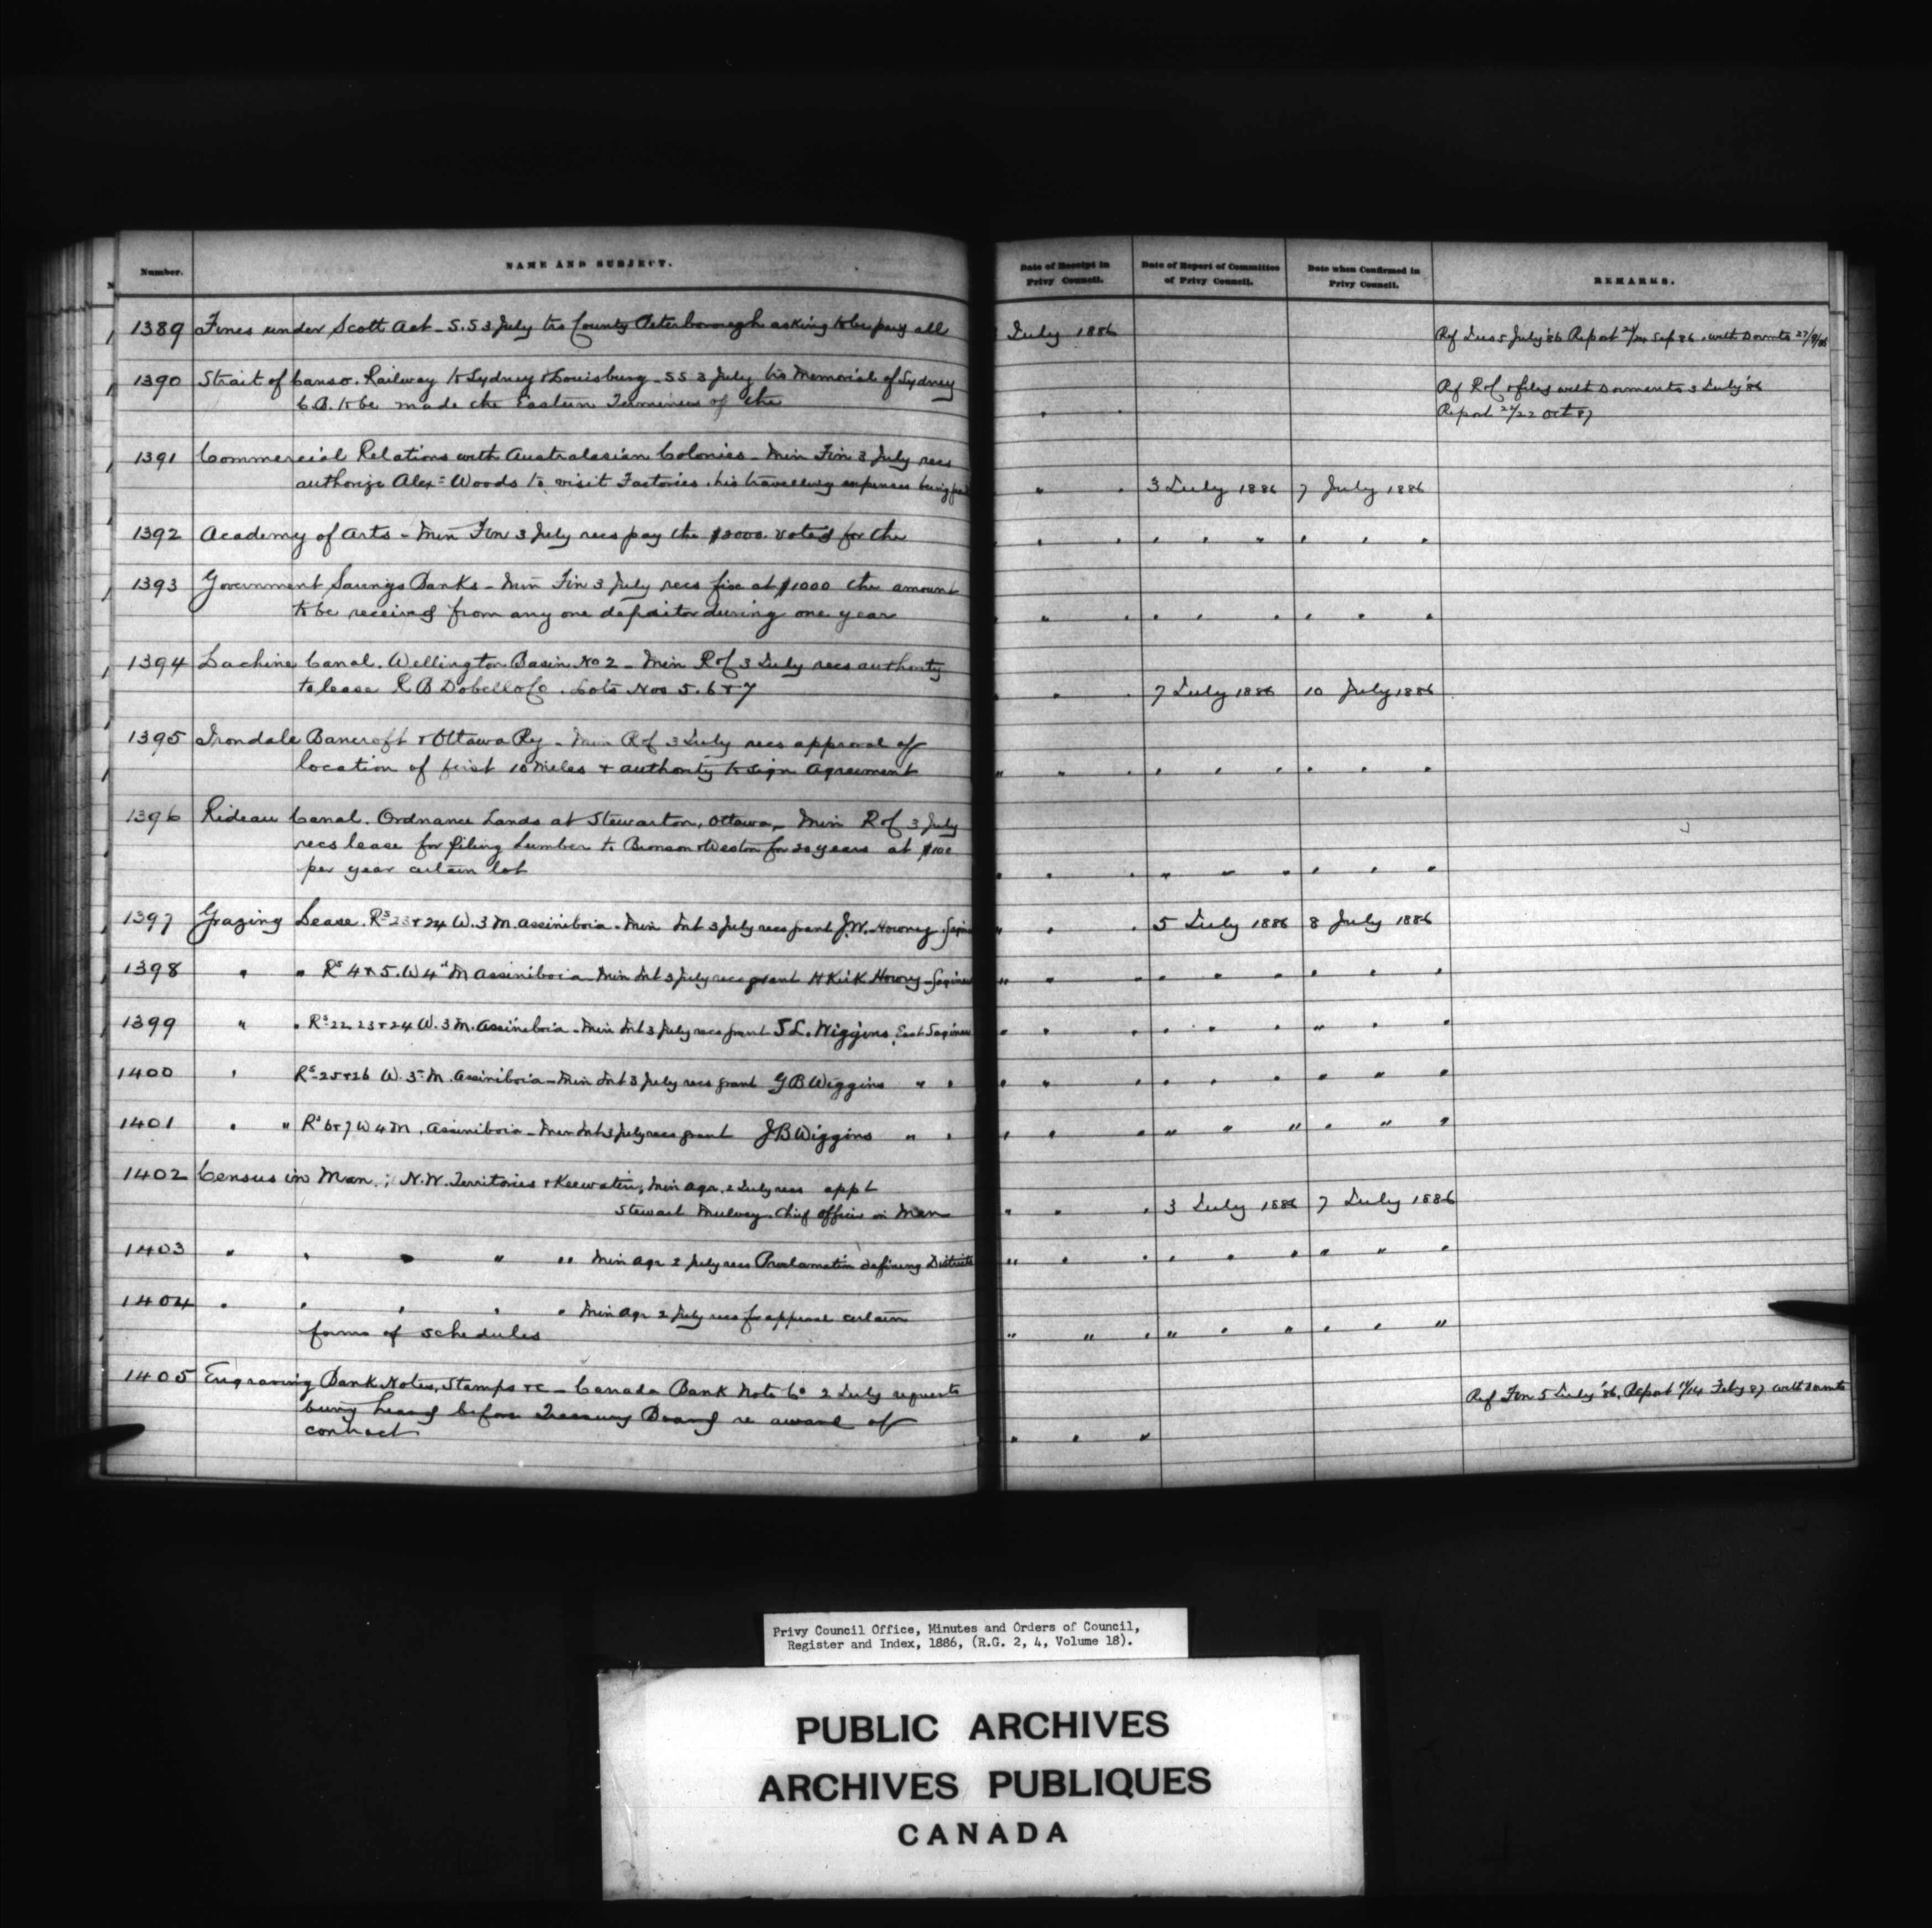 Number.
NAME AND SUBJECT.
Date of Receipt in Privy Council.
Date of Report of Committee of Privy Council.
Date when Confirmed in Privy Council.
REMARKS.
1389 Fines under Scott Act - S.S 3 July trs County Peterborough asking to be pay all July 1886 Ref Jus 5 July '86 Report 24/24 Sep 86. with Dormts 27/9/86
1390 Strait of Canso. Railway to Sydney & Louisburg - SS 3 July trs Memorial of Sydney
C.B. to be made the Eastern Terminus of the " " Ref R&C & filed with Dormants 3 July '86
Report 22/22 Oct 87
1391 Commercial Relations with Australasian Colonies - Min Fin 3 July recs
authorize Alexr Woods to visit Factories. his travelling expenses being pd " " 3 July 1886 7 July 1886
1392 Academy of Arts - Min Fin 3 July recs pay the $2000. voted for the " " " " " " " "
1393 Government Savings Banks - Min Fin 3 July recs fix at $1000 the amount
to be received from any one depositor during one year " " " " " " " "
1394 Lachine Canal. Wellington Basin No 2 - Min R&C 3 July recs authority
to lease R B Dobell & Co. Lots Nos 5. 6 & 7 " " 7 July 1886 10 July 1886
1395 Irondale Bancroft & Ottawa Ry - Min R&C 3 July recs approval of
location of first 10 miles & authority to sign Agreement " " " " " " " " "
1396 Rideau Canal. Ordnance Lands at Stewarton, Ottawa - Min R&C 3 July
recs lease for piling Lumber to Bronson & Weston for 20 years at $100
per year certain lot " " " " " " " " "
1397 Grazing Lease. Rs 23 & 24 W. 3 M. Assiniboia - Min Int 3 July recs grant J.W. Howrey " " " 5 July 1886 8 July 1886
1398 " " Rs 4 & 5. W 4" M Assiniboia - Min Int 3 July recs grant H Kirk Howry - Saginaw " " " " " " " " "
1399 " " Rs 22 23 & 24 W. 3 M. Assiniboia - Min Int 3 July recs grant S L. Wiggins, East Saginaw " " " " " " " " "
1400 " Rs 25 & 26 W. 3 M. Assiniboia - Min Int 3 July recs grant G B Wiggins " " " " " " " " " " "
1401 " " Rs 6 & 7 W 4 M. Assiniboia - Min Int 3 July recs grant J B Wiggins " " " " " " " " " " "
1402 Census in Man.; N.W. Territories & Keewatin; Min Agr. 2 July recs appt
Stewart Mulvey. Chief officer in Man " " " 3 July 1886 7 July 1886
1403 " " " " " Min Agr 2 July recs Proclamation defining Districts " " " " " " " " "
1404 " " " " " Min Agr 2 July recs for approval certain
forms of schedules " " " " " " " " "
1405 Engraving Bank Notes, Stamps &c - Canada Bank Note Co 2 July requests
being heard before Treasury Board re award of Ref Fin 5 July '86. Report 11/14 Feby 87 with Dormts
contract " " "
Privy Council Office, Minutes and Orders of Council,
Register and Index, 1886, (R.G. 2, 4, Volume 18).
PUBLIC ARCHIVES
ARCHIVES PUBLIQUES
CANADA